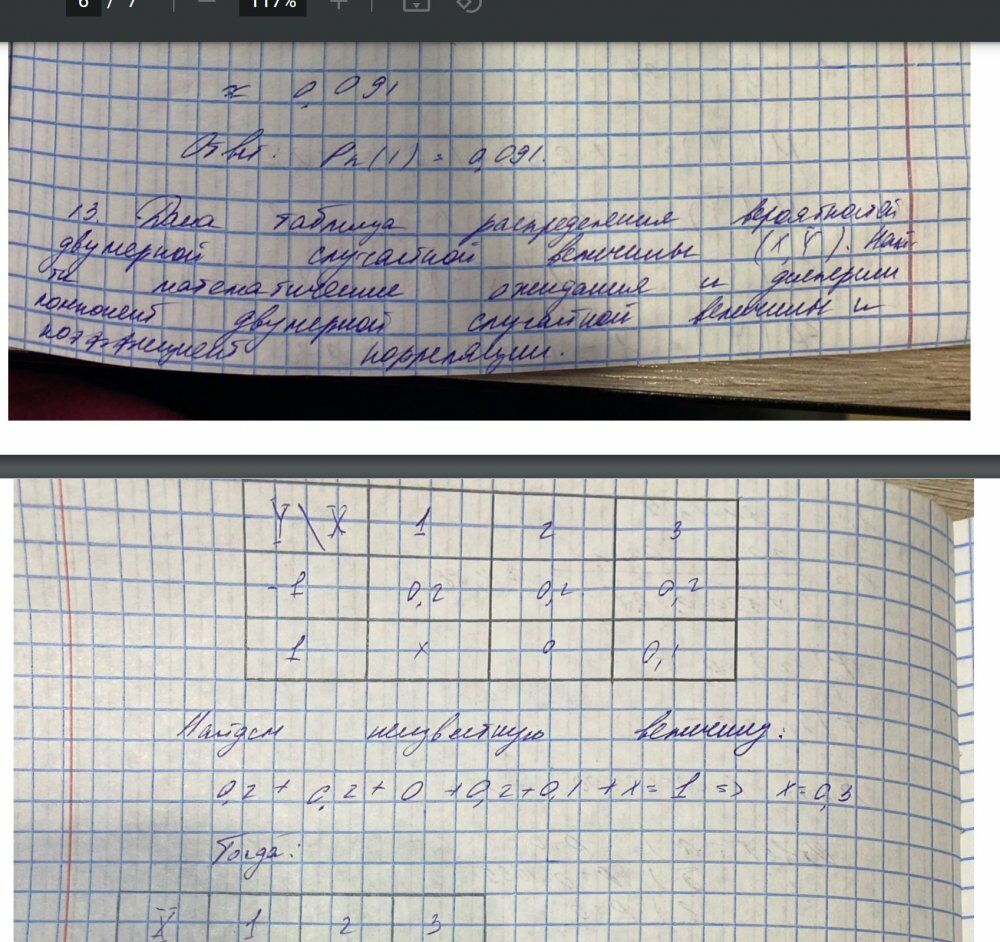 6 / 7 117%
≈ 0,091
Ответ: Pn(1) = 0,091.
13. Дана таблица распределения вероятностей
двумерной случайной величины (X, Y). Най-
ти математические ожидания и дисперсии
компонент двумерной случайной величины и
коэффициент корреляции.
Y \ X 1 2 3
-1 0,2 0,2 0,2
1 x 0 0,1
Найдем неизвестную величину:
0,2 + 0,2 + 0 + 0,2 + 0,1 + x = 1 => x = 0,3
Тогда:
X 1 2 3